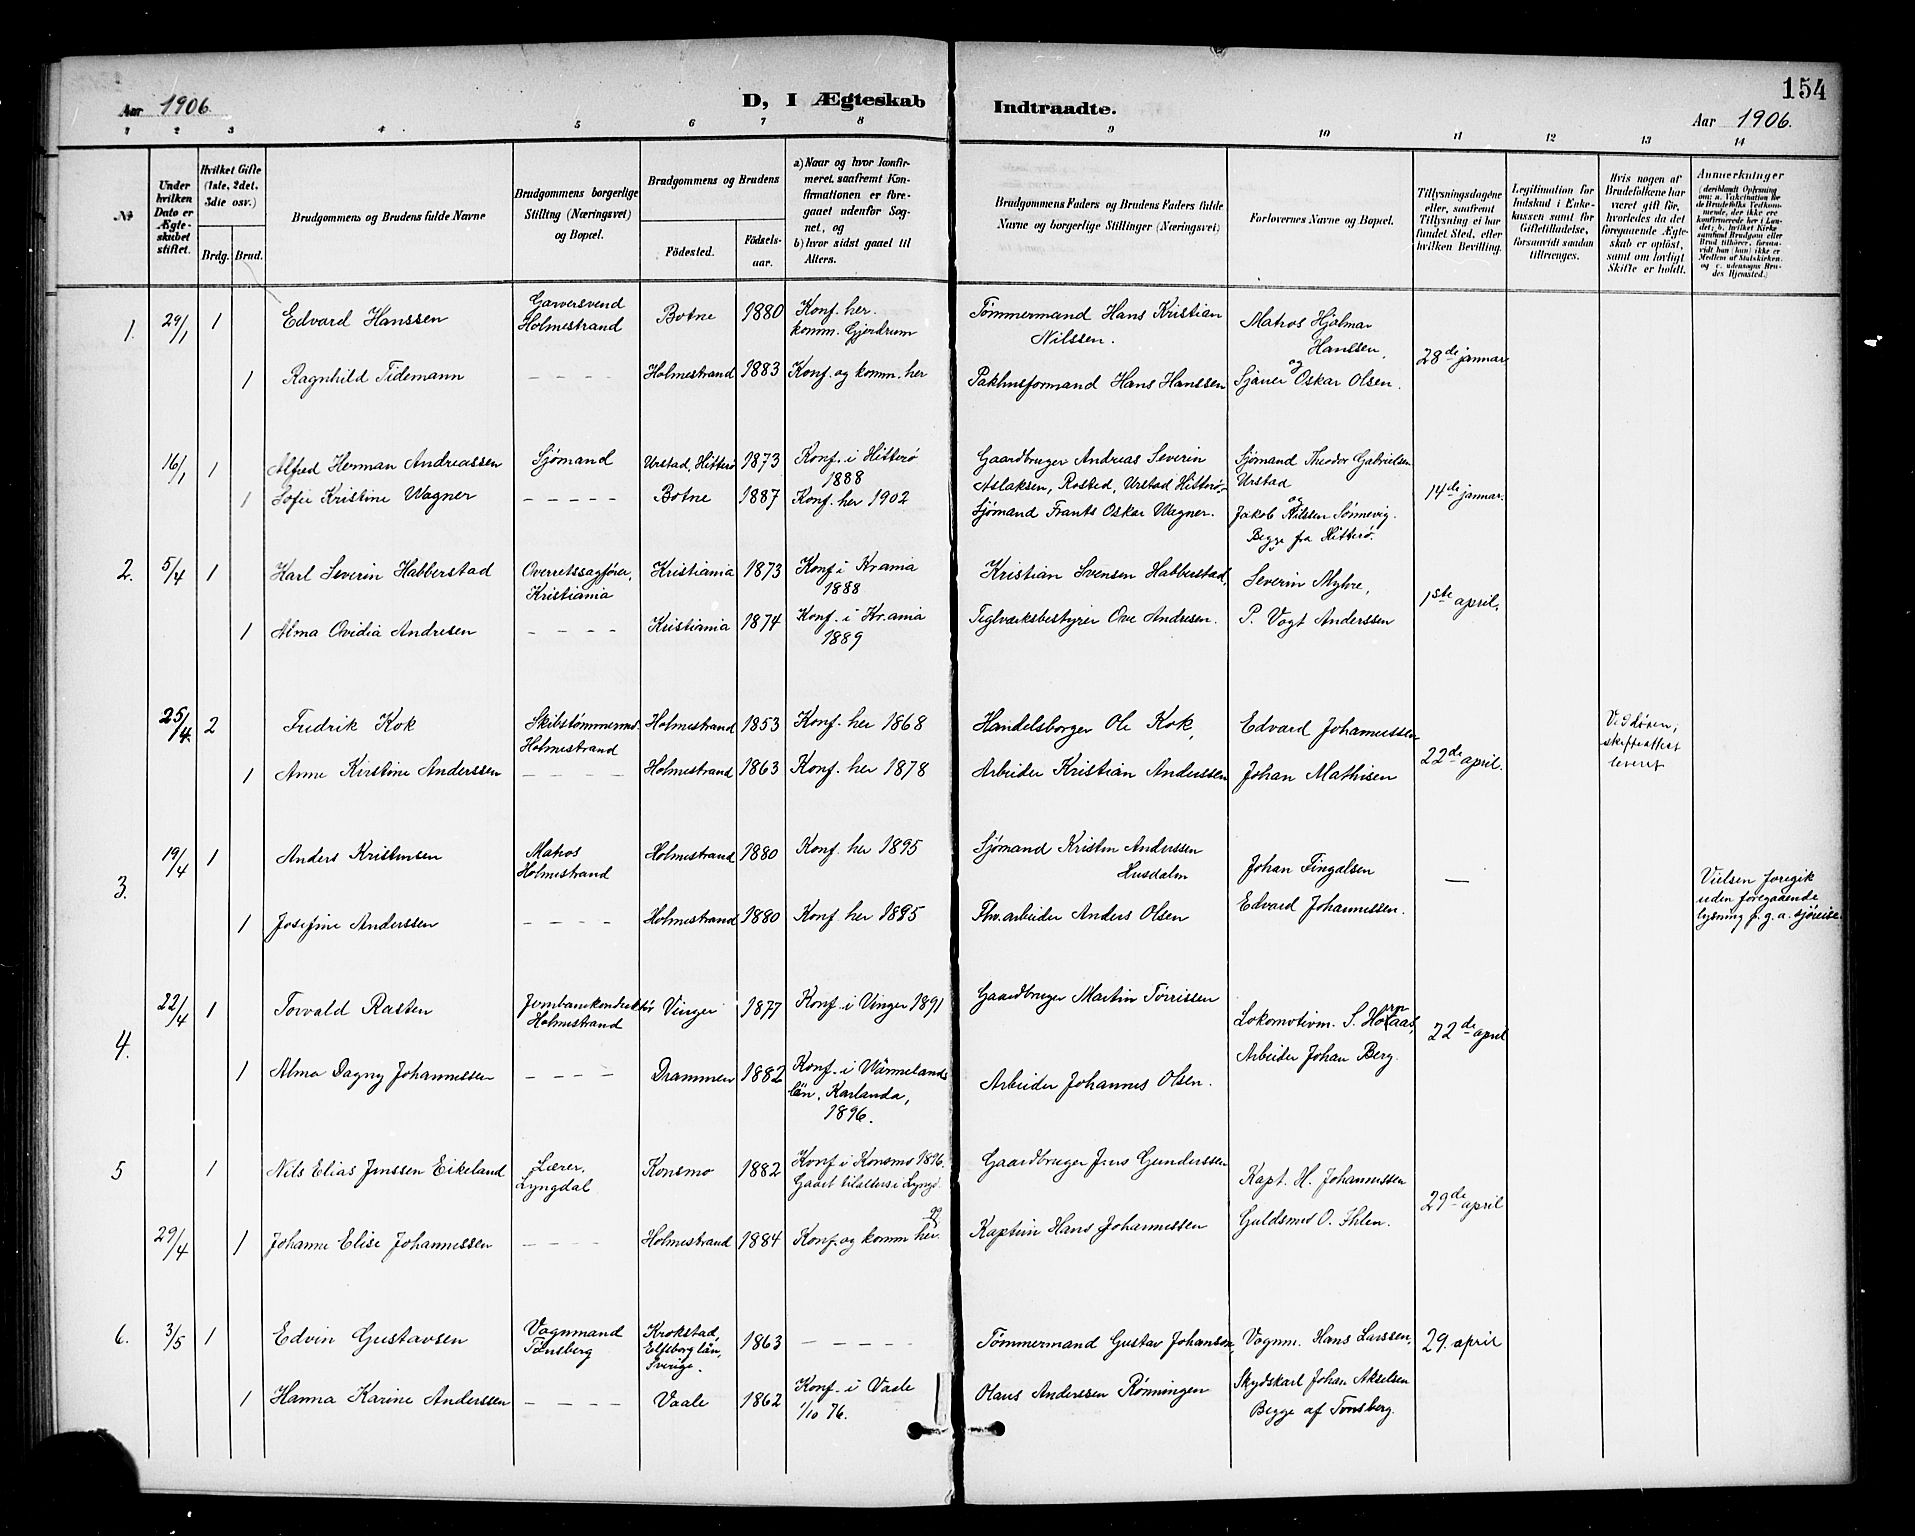 154
Aar 1906. D, I Ægteskab Indtraadte. Aar 1906.
1 2 3 4 5 6 7 8 9 10 11 12 13 14
№
Under hvilken Dato er Ægteskabet stiftet.
Hvilket Gifte (1ste, 2det, 3die osv.)
Brdg. Brud.
Brudgommens og Brudens fulde Navne
Brudgommens borgerlige Stilling (Næringsvei) og Bopæl.
Brudgommens og Brudens
Födested.
Födsels-aar.
a) Naar og hvor konfirmeret, saafremt Konfirmationen er foregaaet udenfor Sognet, og
b) hvor sidst gaaet til Alters.
Brudgommens Faders og Brudens Faders fulde Navne og borgerlige Stillinger (Næringsvei)
Forlovernes Navne og Bopæl.
Tillysningsdagene eller, saafremt Tillysning ei har fundet Sted, efter hvilken Bevilling.
Legitimation for Indskud i Enkekassen samt for Giftetilladelse, forsaavidt saadan tiltrænges.
Hvis nogen af Brudefolkene har været gift før, hvorledes da det foregaaende Ægteskab er oplöst, samt om lovligt Skifte er holdt.
Anmærkninger (deriblandt Oplysning om: a. Vakcination for de Brudefolks Vedkommende, der ikke ere konfirmerede her i Landet; b. hvilket Kirkesamfund Brudgom eller Brud tilhører, forsaavidt han (hun) ikke er Medlem af Statskirken og c. udensogns Brudes Hjemsted.)
1. 29/1 1 Edvard Hanssen Garversvend Holmestrand Botne 1880 Konf. her. komm. Gjerdrum Tømmermand Hans Kristian Nilssen. Matros Hjalmar Hanssen,
1 Ragnhild Tidemann – – – – Holmestrand 1883 Konf. og komm. her Pakhusformand Hans Hanssen og Sjauer Oskar Olsen. 28de januar
16/1 1 Alfred Herman Andreassen Sjømand Urstad, Hitterø 1873 Konf. i Hitterø 1888 Gaardbruger Andreas Severin Aslaksen, Rosted, Urstad Hitterø. Sjømand Theodor Gabrielsen Urstad
1 Sofie Kristine Wagner – – – – – Botne 1887 Konf. her 1902 Sjømand Frants Oskar Wagner. og Jakob Nilssen Sønnevig. Begge fra Hitterø. 14de januar.
2. 5/4 1 Karl Severin Habberstad Overretssagfører, Kristiania Kristiania 1873 Konf i Krania 1888 Kristian Svensen Habberstad, Severin Myhre,
1 Alma Ovidia Andresen – – – – Kristiania 1874 Konf. i Kr.ania 1889 Teglværksbestyrer Ove Andresen. P. Vogt Anderssen 1ste april.
25/4. 2 Fredrik Kok Skibstømmermd. Holmestrand Holmestrand 1853 Konf. her 1868 Handelsborger Ole Kok, Edvard Johannessen Ved døden, skifteattest leveret
1 Anne Kirstine Anderssen – – – – Holmestrand 1863 Konf. her 1878 Arbeider Kristian Anderssen Johan Mathisen 22de april.
3. 19/4 1 Anders Kristensen Matros Holmestrand Holmestrand 1880 Konf. her 1895 Sjømand Kristen Anderssen Husdalm Johan Fingalsen —
1 Josefine Anderssen – – – – – Holmestrand 1880 Konf her 1895 Thv.arbeider Anders Olsen Edvard Johannessen.
Vielsen foregik uden foregaaende lysning p. g. a. sjøreise.
4. 22/4 1 Torvald Rasten Jernbanekonduktør Holmestrand Vinger 1877 Konf. i Vinger 1891 Gaardbruger Martin Torrissen Lokomotivm. S.
1 Alma Dagny Johannessen – – – – Drammen 1882 Konf. i Wärmelands län, Karlanda, 1896. Arbeider Johannes Olsen. Arbeider Johan Berg. 22de april
5 1 Nils Elias Jenssen Eikeland Lærer, Lyngdal Konsmo 1882 Konf i Konsmo 1896. Gaaet til alters i Lyngd. Gaardbruger Jens Gunderssen Kapt. H. Johannessen
29/4 1 Johanne Elise Johannessen – – – – Holmestrand 1884 Konf. og komm her. 99 Kaptein Hans Johannessen Guldsmed O. Ihlen. 29de april
6. 3/5 1 Edvin Gustavsen Vognmand Tønsberg Krokstad, Elfsborg län, Sverige. 1863 – – – – – Tømmermand Gustav Johanson, Vognm. Hans Larssen, 29. april
1 Hanna Karine Anderssen – – – – – Vaale 1862 Konf. i Vaale 1/10 76. Olaus Anderssen Rønningen Skydskarl Johan Akselsen Begge af Tønsberg.